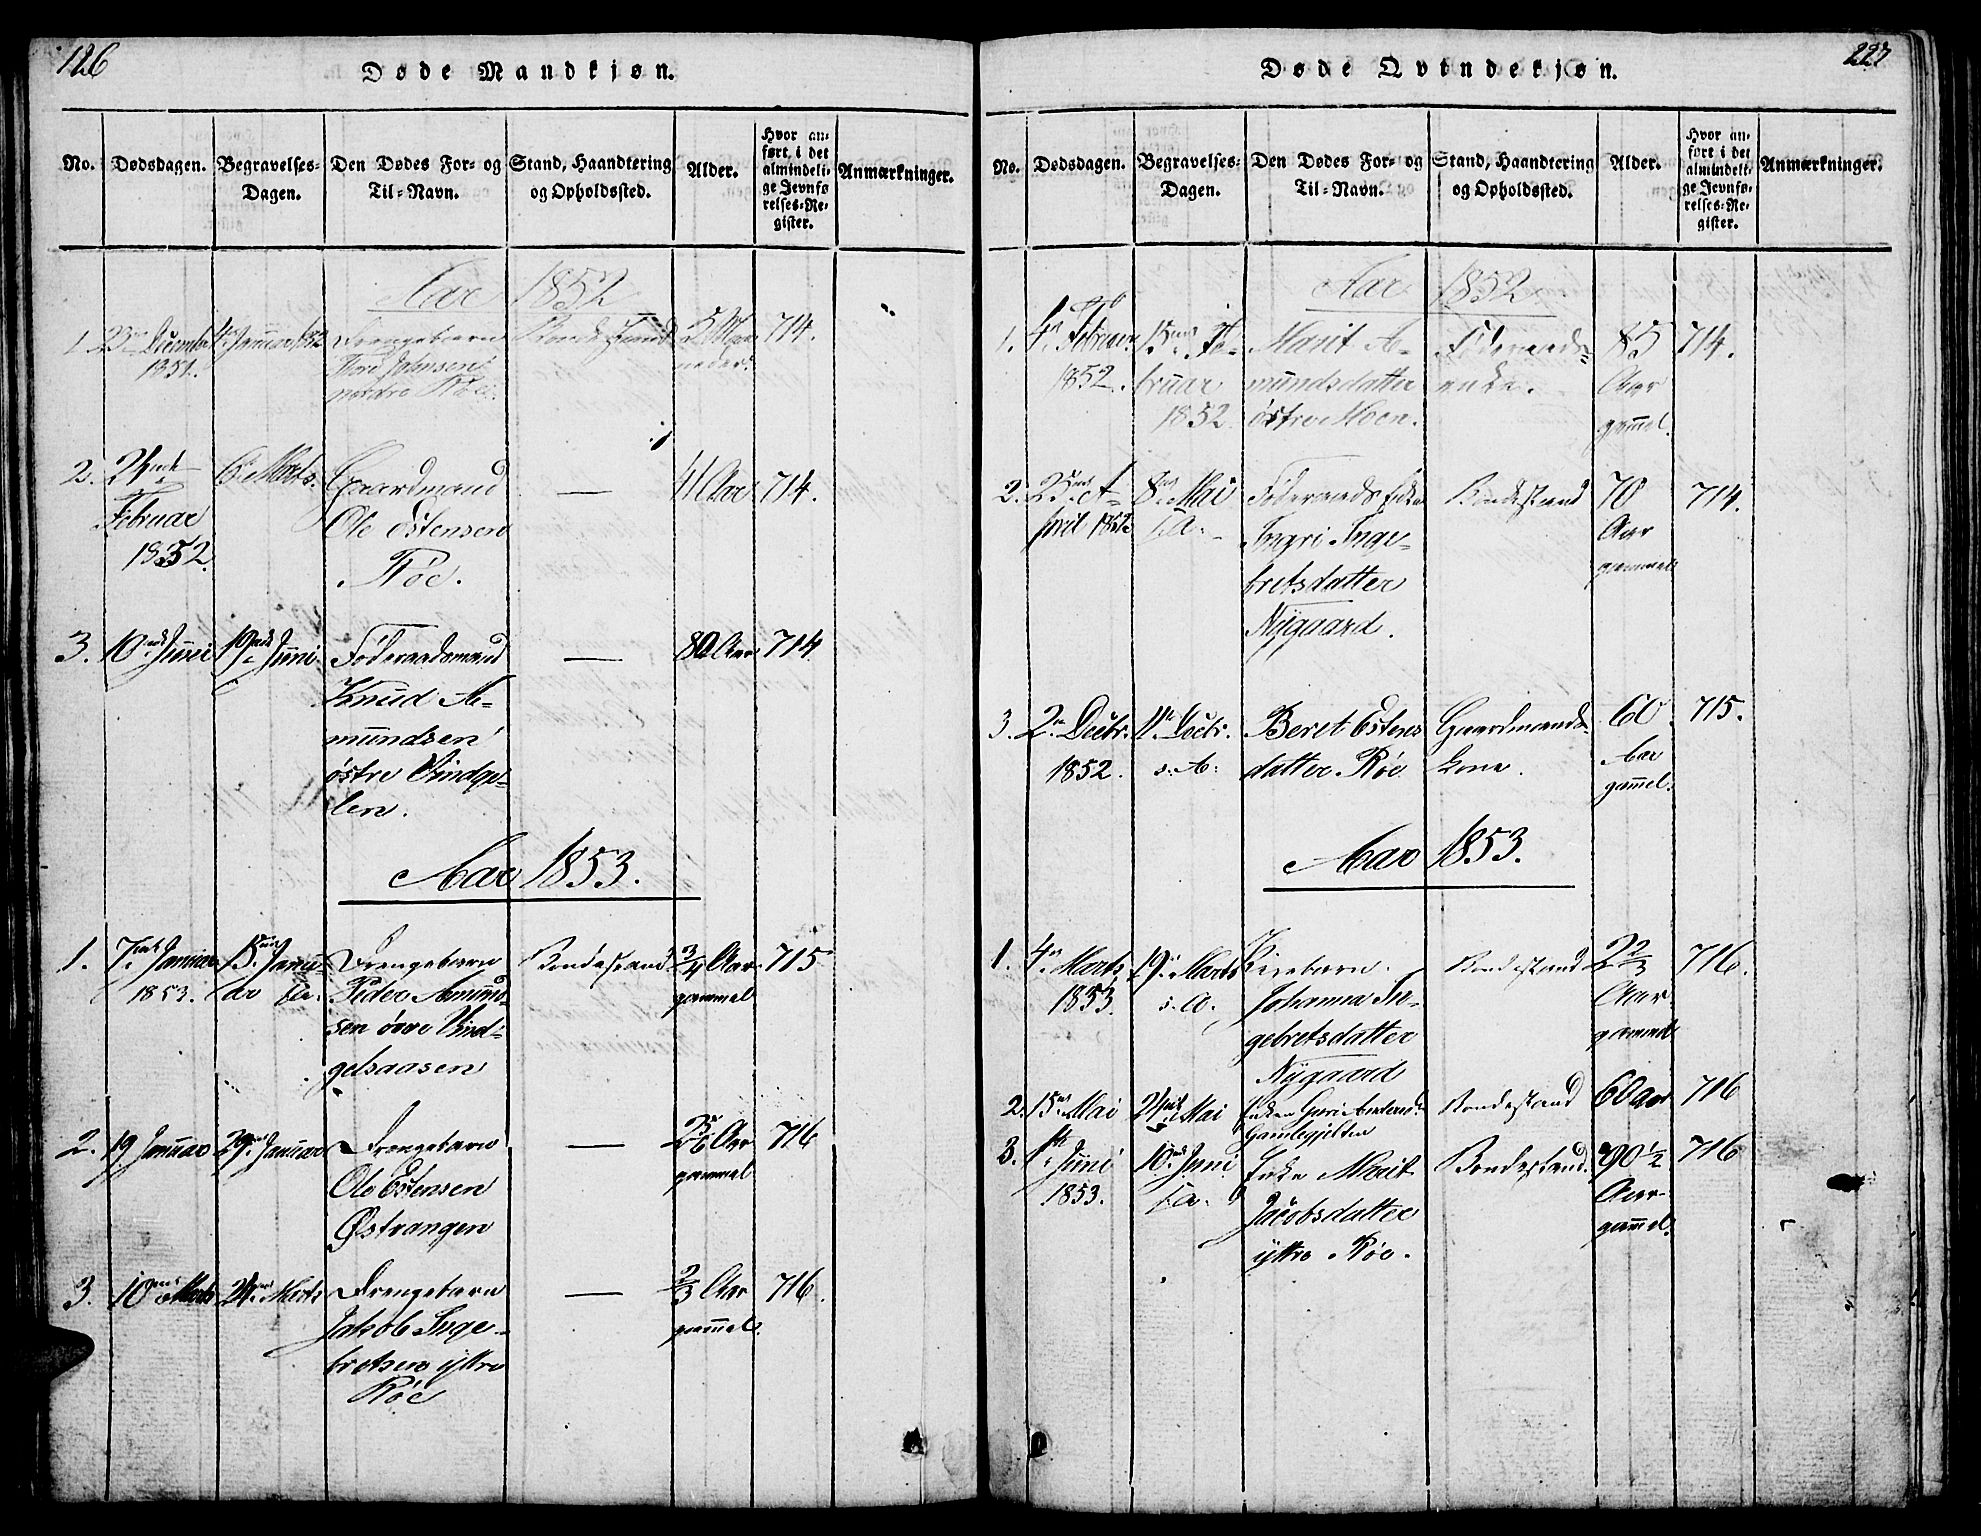 126
Døde Mandkjøn.
No. Dødsdagen. Begravelses-Dagen. Den Dødes For- og Til-Navn. Stand, Haandtering og Opholdssted. Alder. Hvor anført i det almindelige Jevnførelses-Register. Anmærkninger.
Aar 1852
1. 23 December 4 Januar 1852 Drengebarn Bondestand 5 Maa- 714.
1851. Tore Johnsen neder.
nordre Røe.
2. 24de 6te Marts. Gaardmand — 41 Aar 714.
Februar Ole Estensen
1852. Røe.
3. 10de Juni 19de Juni Føderaadsmand — 80 Aar 714
Knud A-
mundsen
østre Vindge-
len.
Aar 1853.
1. 7de Januar 15 Janu- Drengebarn Bondestand 3/4 Aar 715
1853. ar Peder Amund- gammel
sen øvre Vind-
gelsaasen
2. 19 Januar 29 Januar Drengebarn — Aar 716
Ole Estensen gammel
Østvangen
3. 10 Marts 24 Marts Drengebarn — 2/3 Aar 716.
Jakob Inge- gammel.
bretsen yttre
Røe
227
Døde Qvindekjøn.
No. Dødsdagen. Begravelses-Dagen. Den Dødes For- og Til-Navn. Stand, Haandtering og Opholdssted. Alder. Hvor anført i det almindelige Jevnførelses-Register. Anmærkninger.
Aar 1852
1. 4 Februar 15 Fe- Marit A- Føderaads- 85 714.
1852. bruar mundsdatter enke. Aar
1852 østre Moen. gammel.
2. 25 A- 8 Mai Føderaads Enke Bondestand 70 714.
pril 1852 s. A. Ingri Inge- Aar
bretsdatter gammel
Nygaard.
3. 2 Decbr. 11 Decbr. Beret Estens Gaardmands- 60 715.
1852. s. A. datter Røe kone. Aar
gammel.
Aar 1853.
1. 4 Marts 19 Marts Pigebarn. Bondestand 2 2/3 716.
1853. s. A. Johanna In- Aar
gebretsdatter gammel
Nygaard
2. 15 Mai 24 Mai Enken Guri Bondestand 60 Aar 716
Gamlegjelten
3. 1 Juni 10 Juni Enke Marit Bondestand. 90 1/2 716
1853. s. A. Jacobsdatter Aar
yttre Røe. gammel.